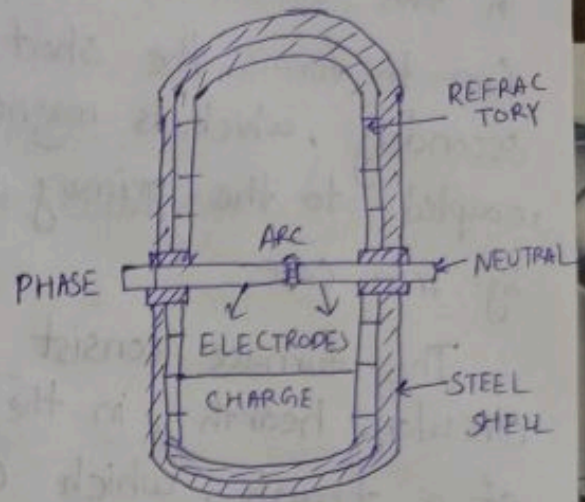 REFRAC
TORY
ARC
PHASE
NEUTRAL
ELECTRODES
CHARGE
STEEL
SHELL